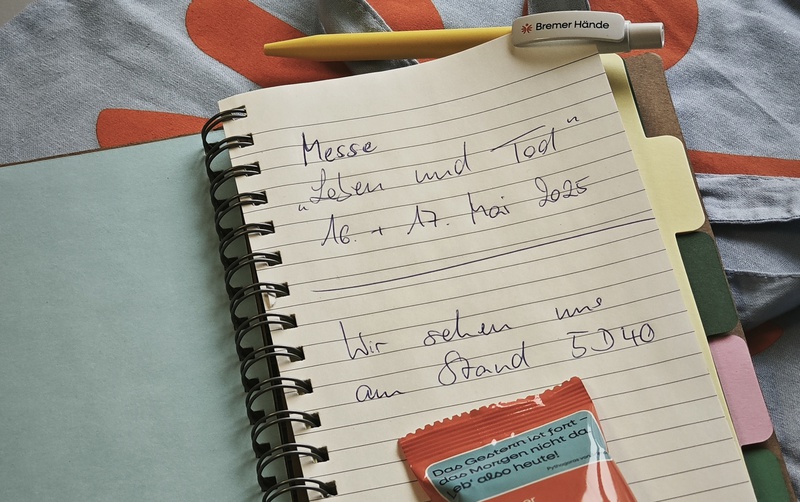 Bremer Hände
Messe
„Leben und Tod"
16. + 17. Mai 2025
Wir sehen uns
am Stand 5D40
Das Gestern ist fort –
das Morgen nicht da.
Leb' also heute!